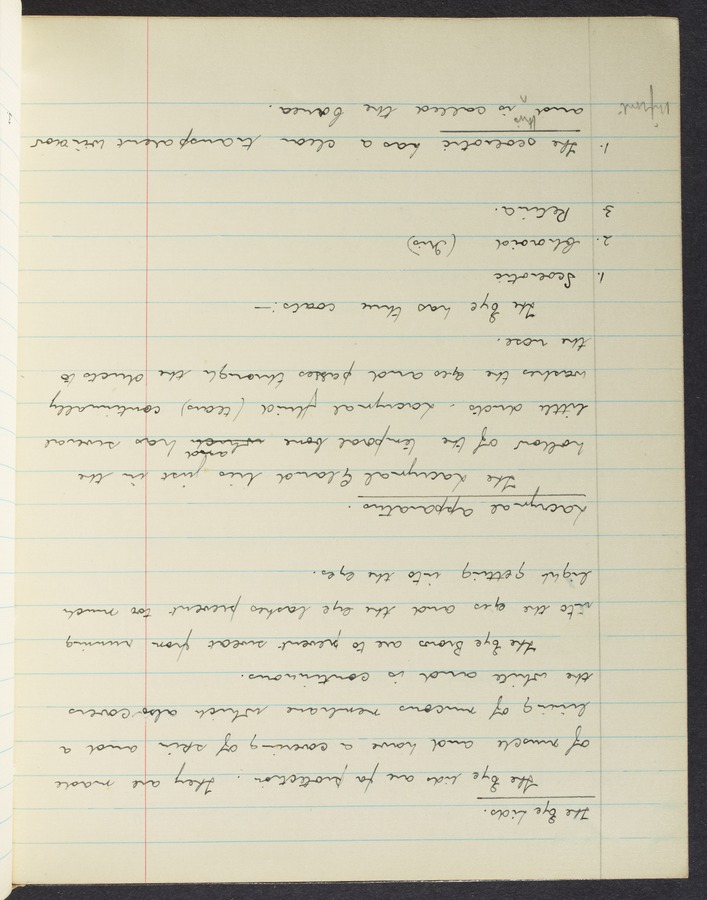 The Eye Lids.
The Eye lids are for protection. They are made
of muscle and have a covering of skin and a
lining of mucous membrane which also covers
the while and is continuous.
The Eye Brows are to prevent sweat from running
into the eyes and the eye lashes prevent too much
light getting into the eyes.
Lacrymal apparatus.
The Lacrymal Gland lies just in the
hollow of the temporal bone which and has several
little ducts. Lacrymal fluid (tears) continually
washes the eyes and passes through the ducts to
the nose.
The Eye has three coats:-
1. Sclerotic
2. Choroid (Iris)
3 Retina.
1. The sclerotic has a clear transparent window
infront and this is called the Cornea.